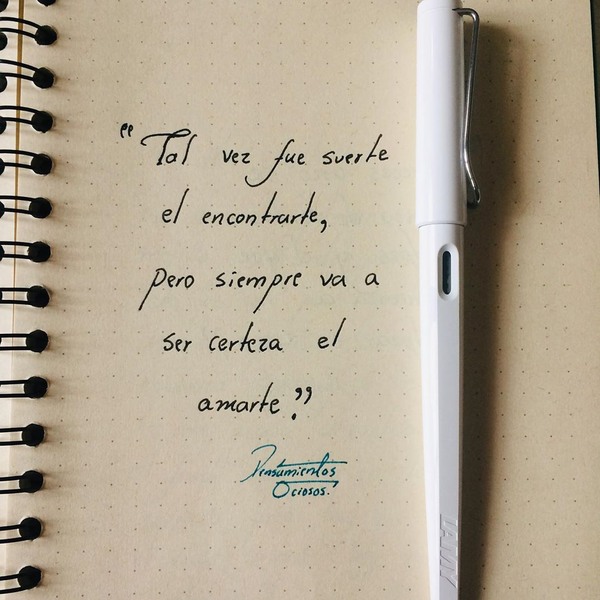 "Tal vez fue suerte
el encontrarte,
pero siempre va a
ser certeza el
amarte."
Pensamientos
Ociosos.
LAMY